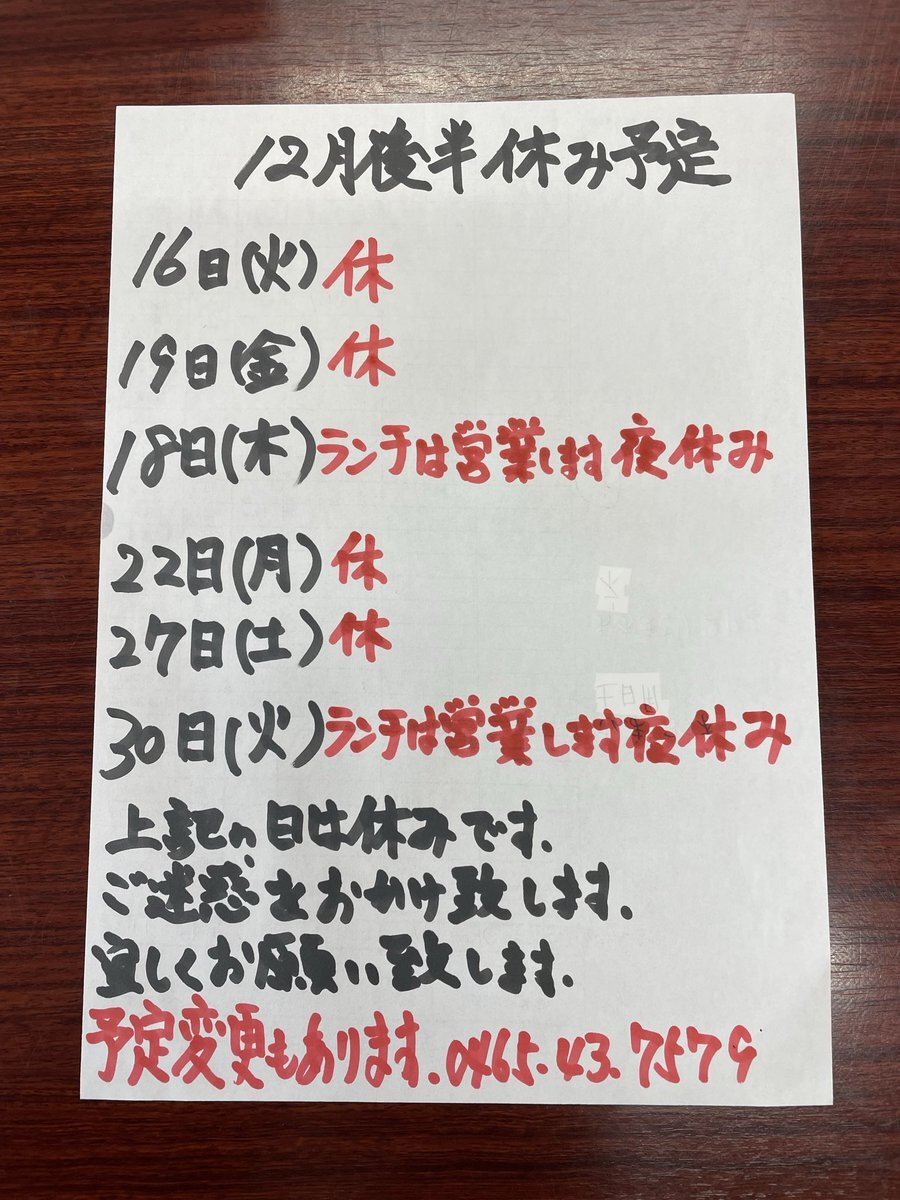 12月後半休み予定
16日(火)休
19日(金)休
18日(木)ランチは営業します夜休み
22日(月)休
27日(土)休
30日(火)ランチは営業します夜休み
上記の日は休みです.
ご迷惑をおかけ致します.
宜しくお願い致します.
予定変更もあります.0465.43.7579